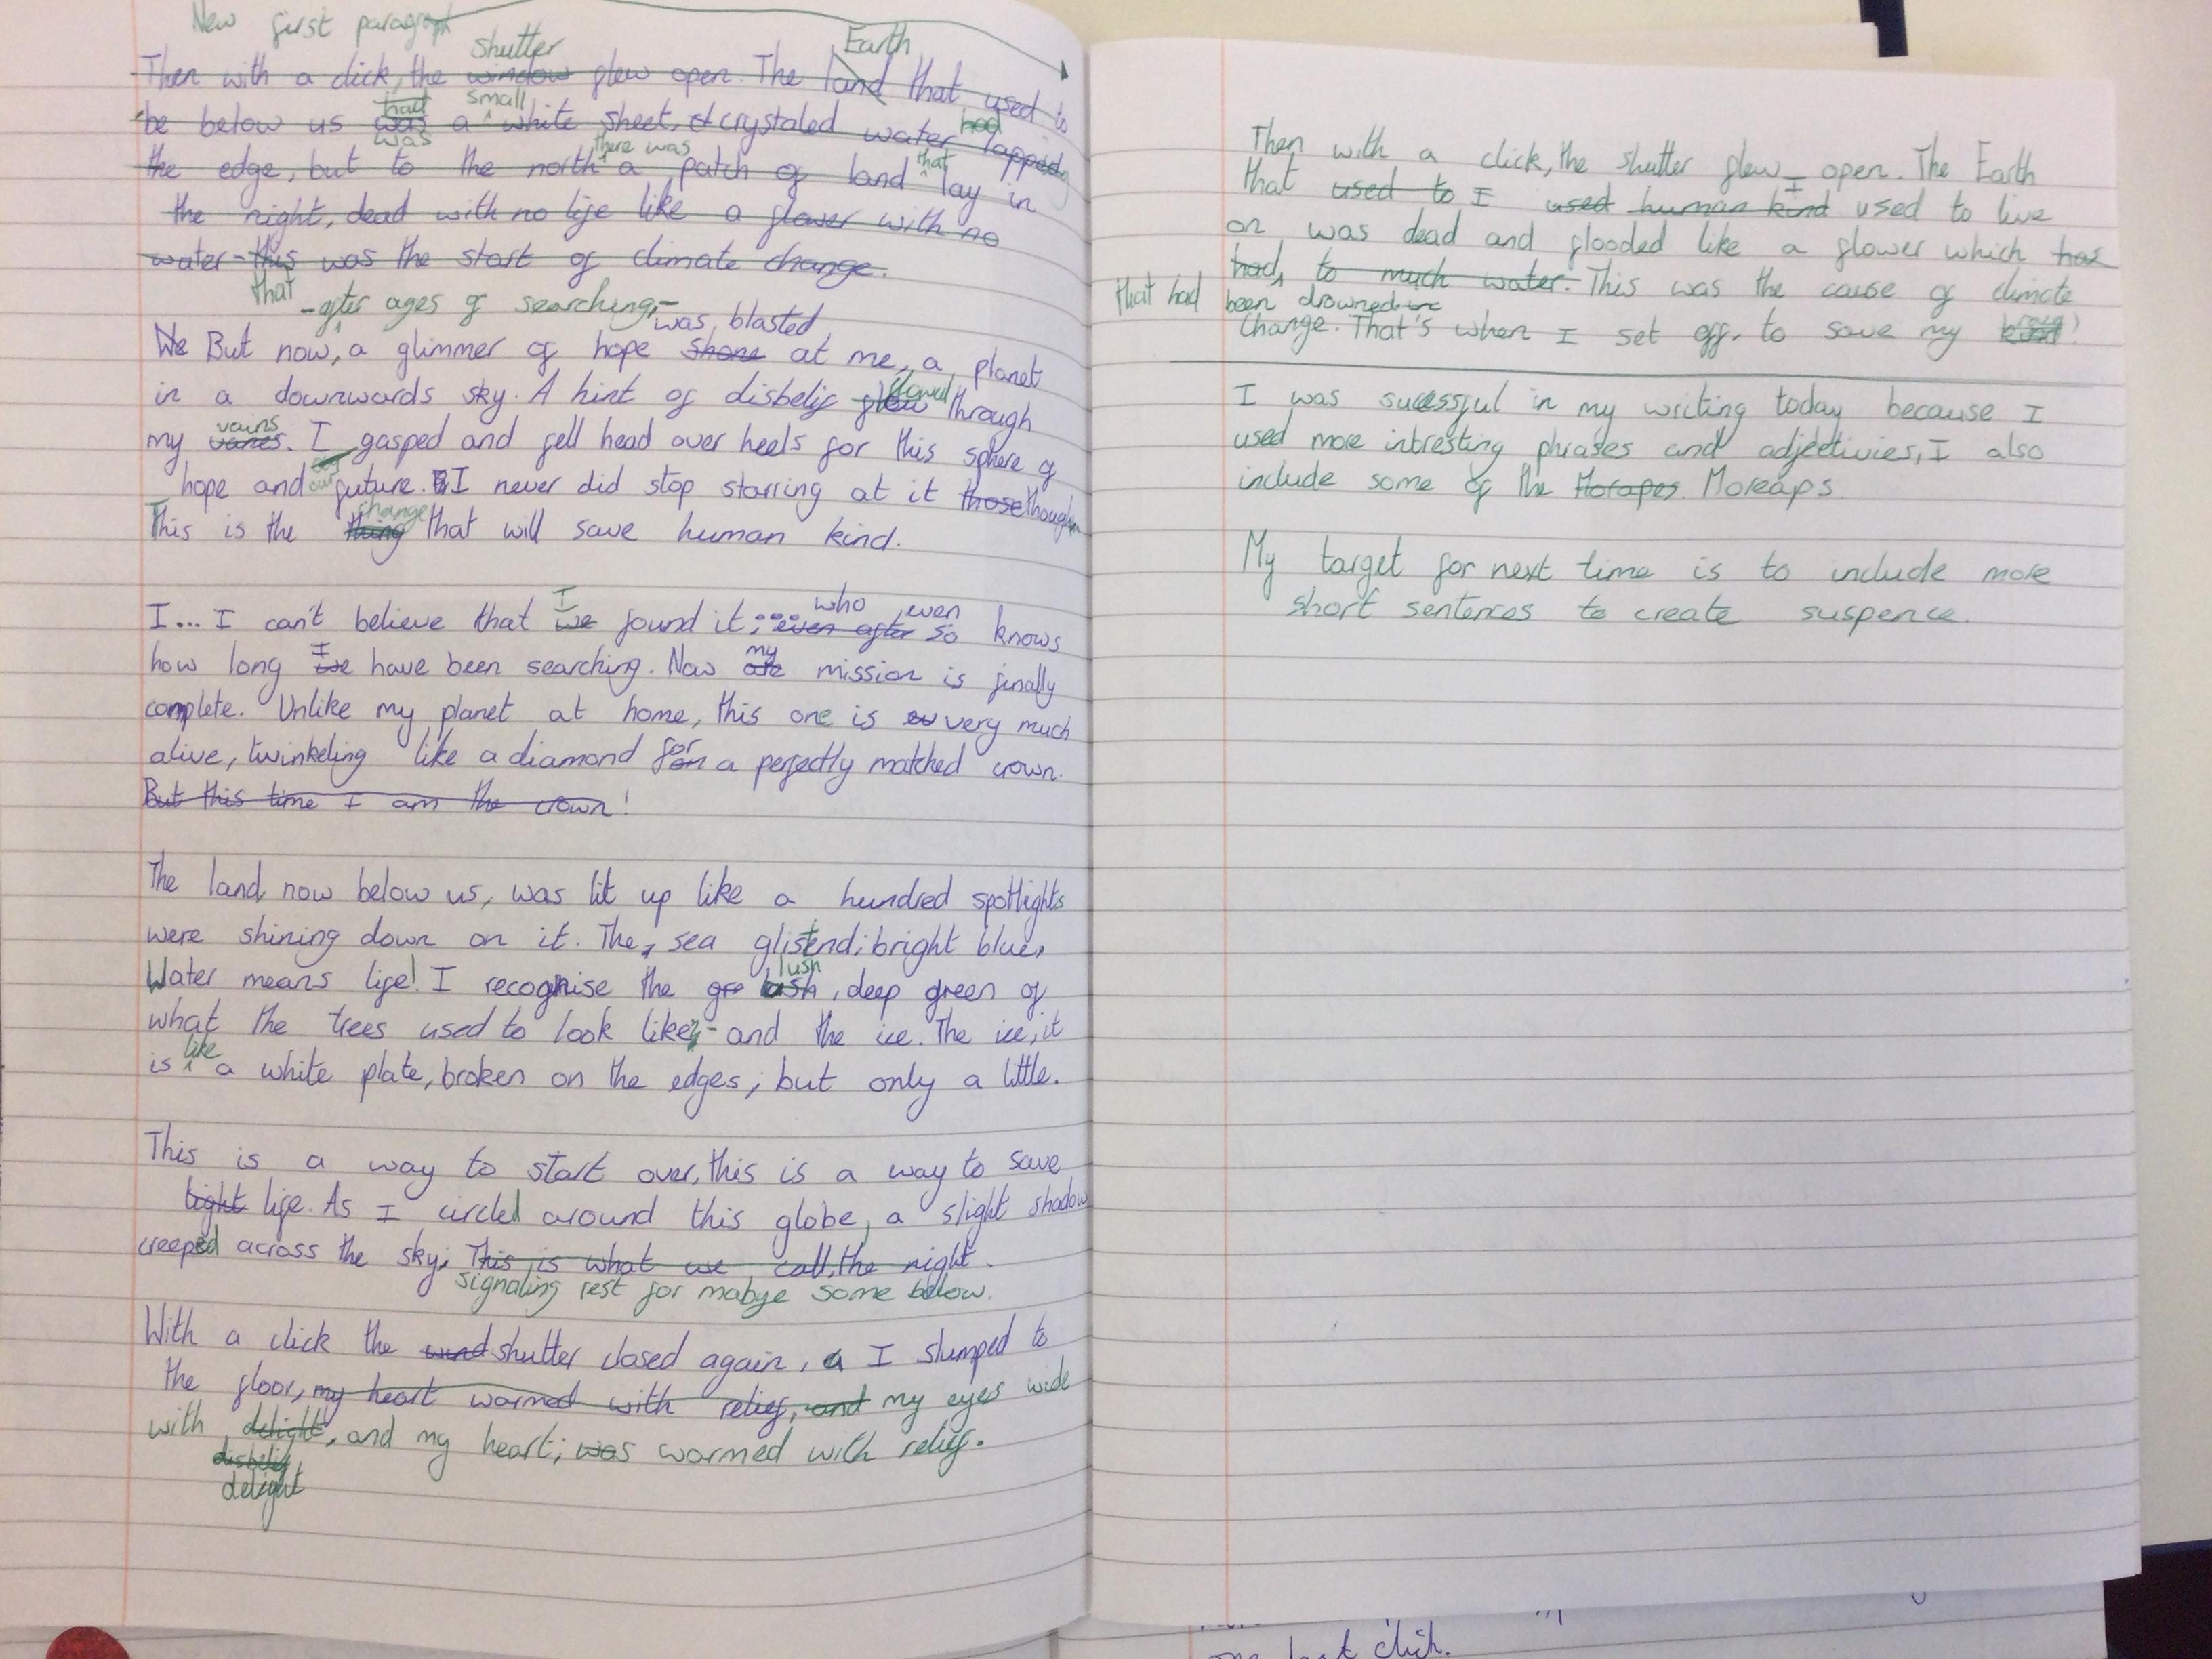 New first paragraph
shutter
Earth
Then with a click, the window flew open. The land that used to
had
small
be below us was a white sheet, crystaled water lapped
had
was
there was
that
the edge, but to the north a patch of land lay in
the night, dead with no life like a flower with no
water - this was the start of climate change.
that
- after ages of searching, -
was blasted
We But now, a glimmer of hope shone at me, a planet
in a downwards sky. A hint of disbelif flew through
flowed
vains
my vanes. I gasped and fell head over heels for this sphere of
our
hope and future. I never did stop starring at it those though
change
This is the thing that will save human kind.
I
who even
I... I can't believe that we found it; even after so knows
I
my
how long we have been searching. Now mission is finally
complete. Unlike my planet at home, this one is very much
for
alive, twinkeling like a diamond on a perfectly matched crown.
But this time I am the crown!
The land, now below us, was lit up like a hundred spotlights
were shining down on it. The, sea glistend; bright blue,
lush
Water means life! I recognise the gre lush, deep green of
what the trees used to look like, - and the ice. The ice, it
like
is a white plate, broken on the edges, but only a little.
This is a way to start over, this is a way to save
light life. As I circled around this globe, a slight shadow
creeped across the sky, This is what we call, the night.
signaling rest for mabye some below.
With a click the wind shutter closed again, a I slumped to
the floor, my heart warmed with relief, and my eyes wide
with delight, and my heart; was warmed with relief.
disbelif
delight
Then with a click, the shutter flew open. The Earth
I
that used to I used human kind used to live
on was dead and flooded like a flower which has
had, to much water. This was the cause of climate
that had been drowned
change. That's when I set off, to save my
I was sucessful in my writing today because I
used more intresting phrases and adjectivies, I also
include some of the Morapes Moreaps.
My target for next time is to include more
short sentences to create suspence.
one last click.